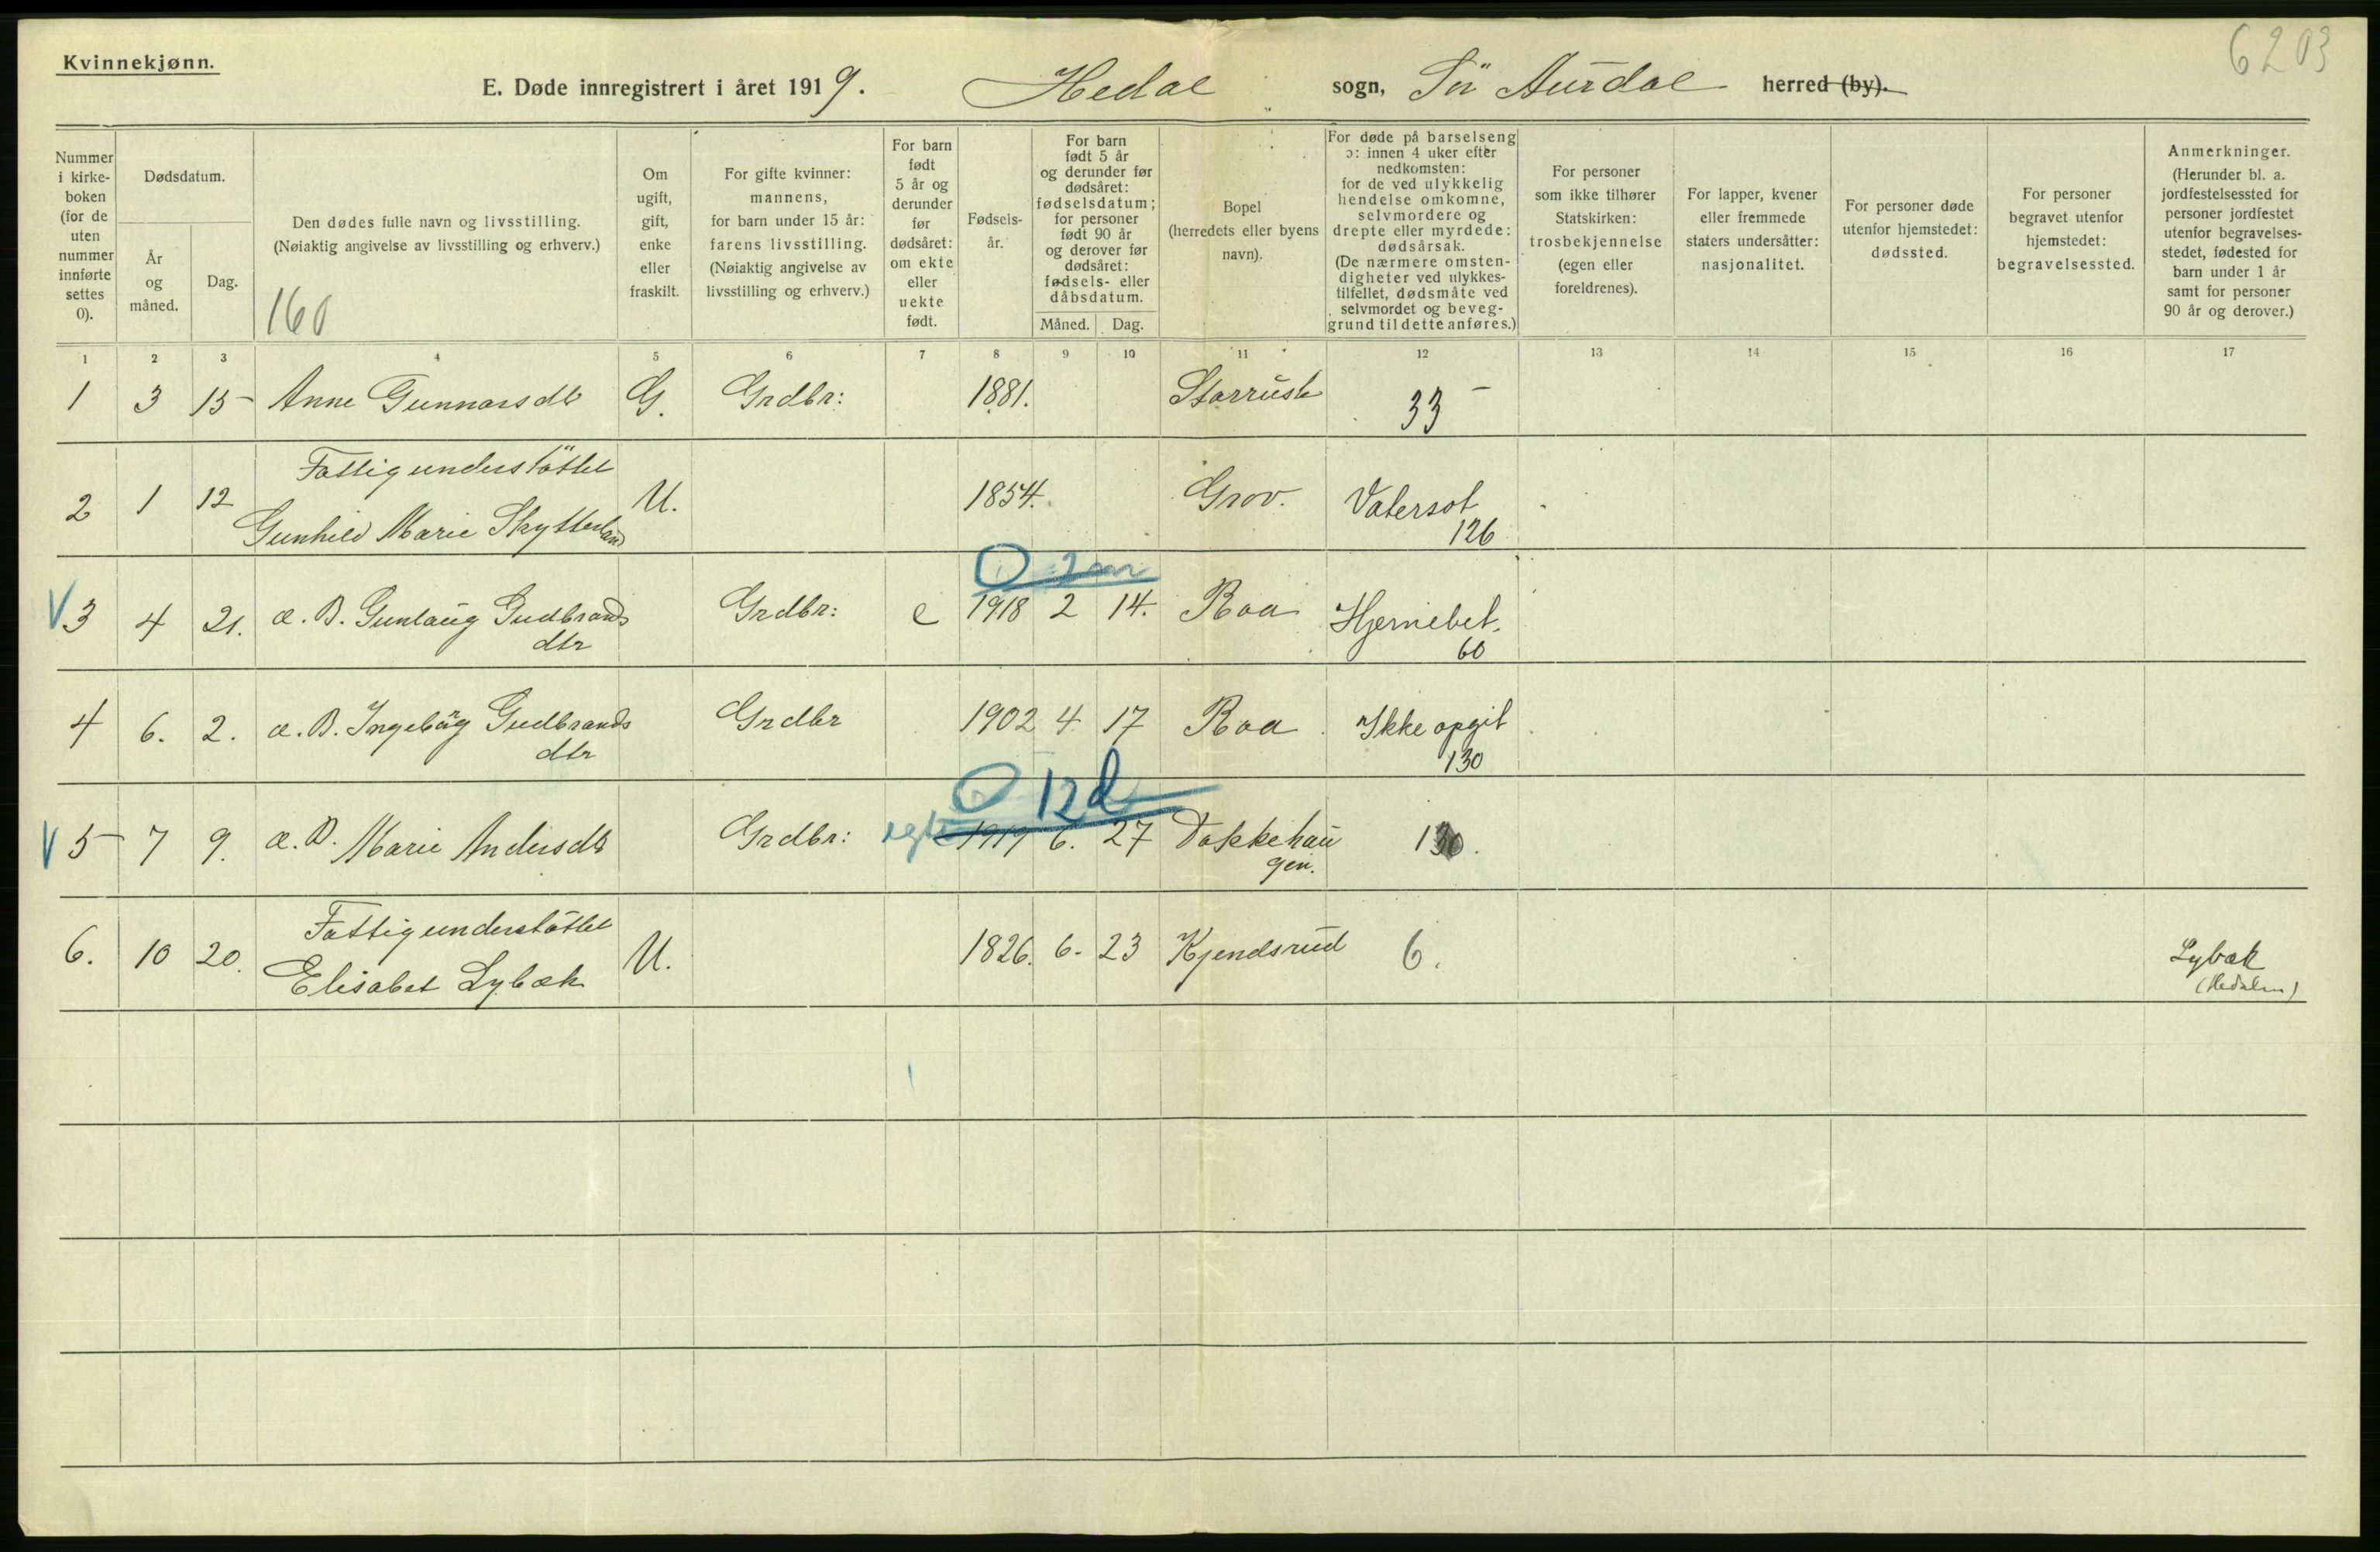 6203
Kvinnekjønn.
E. Døde innregistrert i året 1919. Hedal sogn, Sör Aurdal herred (by).
Nummer i kirke-boken (for de uten nummer innførte settes 0).
Dødsdatum.
År og måned.
Dag.
Den dødes fulle navn og livsstilling.
(Nøiaktig angivelse av livsstilling og erhverv.)
160
Om ugift, gift, enke eller fraskilt.
For gifte kvinner: mannens, for barn under 15 år: farens livsstilling. (Nøiaktig angivelse av livsstilling og erhverv.)
For barn født 5 år og derunder før dødsåret: om ekte eller uekte født.
Fødsels-år.
For barn født 5 år og derunder før dødsåret: fødselsdatum; for personer født 90 år og derover før dødsåret: fødsels- eller dåbsdatum.
Måned. Dag.
Bopel (herredets eller byens navn).
For døde på barselseng ɔ: innen 4 uker efter nedkomsten: for de ved ulykkelig hendelse omkomne, selvmordere og drepte eller myrdede: dødsårsak. (De nærmere omsten-digheter ved ulykkes-tilfellet, dødsmåte ved selvmordet og beveg-grund til dette anføres.)
For personer som ikke tilhører Statskirken: trosbekjennelse (egen eller foreldrenes).
For lapper, kvener eller fremmede staters undersåtter: nasjonalitet.
For personer døde utenfor hjemstedet: dødssted.
For personer begravet utenfor hjemstedet: begravelsessted.
Anmerkninger. (Herunder bl. a. jordfestelsessted for personer jordfestet utenfor begravelses-stedet, fødested for barn under 1 år samt for personer 90 år og derover.)
1 2 3 4 5 6 7 8 9 10 11 12 13 14 15 16 17
1 3 15 Anne Gunnarsdtr G. Grdbr: 1881. Storruste 33 -
Fattigunderstöttet
2 1 12 Gunhild Marie U. 1854. Grov. Vatersot
126
V 3 4 21. æ. B. Gunlaug Gudbrands Grdbr: e 1918 2 14. Roa Hjernebet.
dtr 60
4 6. 2. æ. B. Ingebörg Gudbrands Grdbr 1902 4 17 Roa Ikke opgit
dtr 130
0 12 d
V 5 7 9. æ. B. Marie Andersdtr Grdbr: egte 1919 6. 27 Dokkehau 130.
gen.
Fattigunderstöttet
6. 10 20. Elisabet Lybæk U. 1826. 6. 23 Kjendsrud 6. Lybæk
(Hedalen)